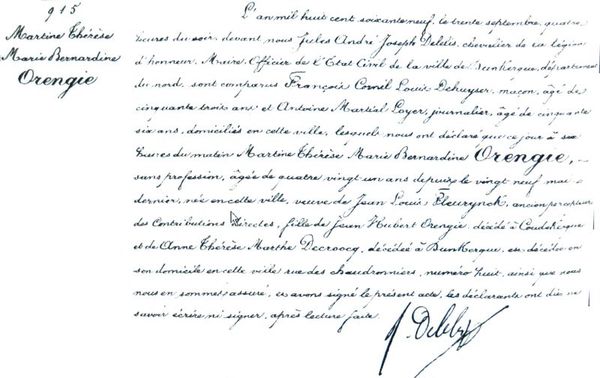 915
Martine Thérèse
Marie Bernardine
Orengie
L'an mil huit cent soixante neuf, le trente septembre, quatre
heures du soir, devant nous Jules André Joseph Delelis, chevalier de la légion
d'honneur, Maire, Officier de l'Etat Civil de la ville de Dunkerque, département
du nord, sont comparus François Cornil Louis Dehuyser, maçon, âgé de
cinquante trois ans et Antoine Martial Loyer, journalier, âgé de cinquante
six ans, domiciliés en cette ville, lesquels nous ont déclaré que ce jour à six
heures du matin Martine Thérèse Marie Bernardine Orengie,
sans profession, âgée de quatre vingt un ans depuis le vingt neuf mai
dernier, née en cette ville, veuve de Jean Louis Fleurynck, ancien percepteur
des Contributions directes, fille de Jean Hubert Orengie, décédé à Coudekerque
et de Anne Thérèse Marthe Decroocq, décédée à Dunkerque, est décédée en
son domicile en cette ville rue des chaudronniers, numéro huit, ainsi que nous
nous en sommes assuré, et avons signé le présent acte, les déclarants ont dit ne
savoir écrire ni signer, après lecture faite.